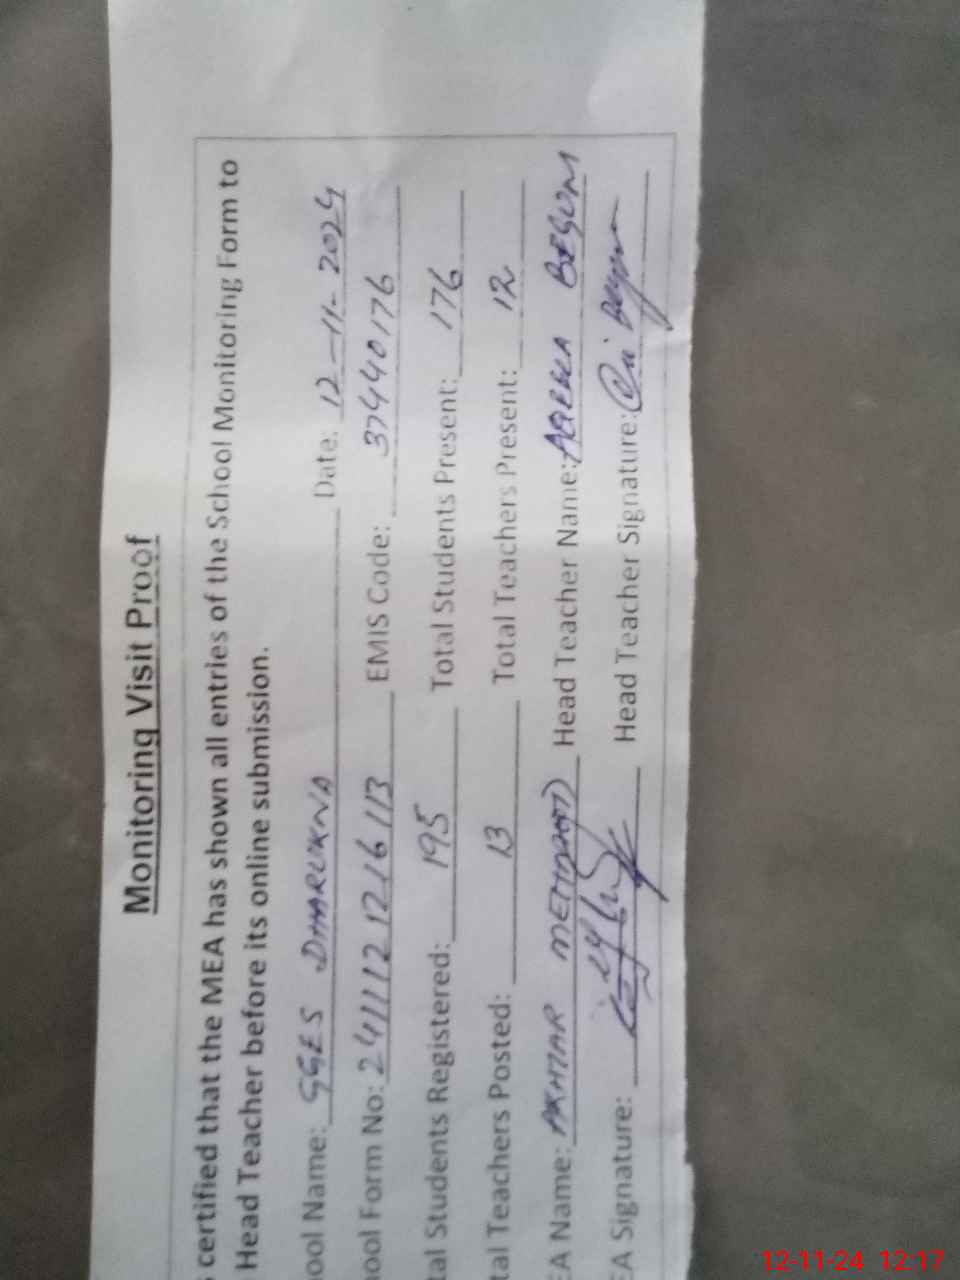 Monitoring Visit Proof
certified that the MEA has shown all entries of the School Monitoring Form to
Head Teacher before its online submission.
ool Name: GGES DHARUKNA Date: 12-11-2024
ool Form No: 241112 1216113 EMIS Code: 37440176
tal Students Registered: 195 Total Students Present: 176
tal Teachers Posted: 13 Total Teachers Present: 12
EA Name: AKHTAR MEHMOOD Head Teacher Name: BEGUM
EA Signature: Head Teacher Signature:
12-11-24 12:17